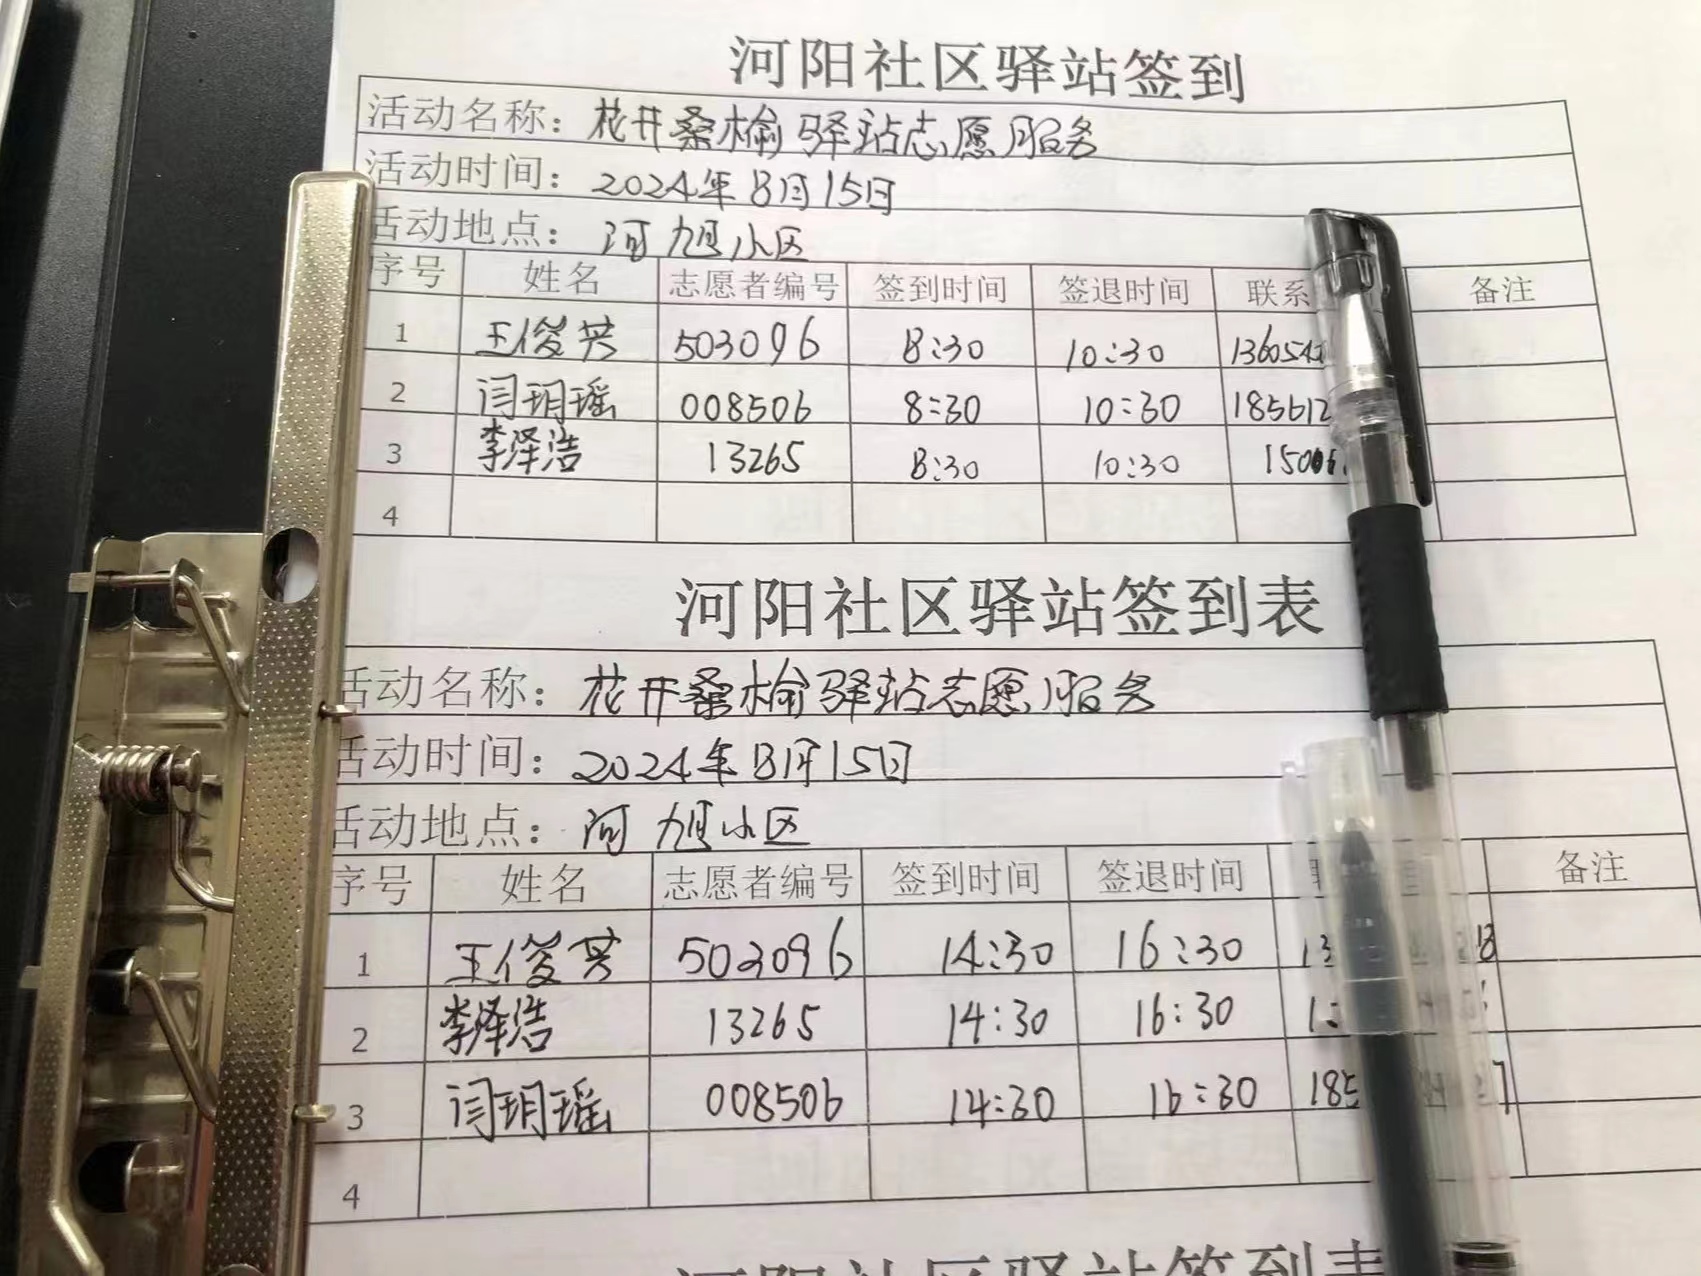 河阳社区驿站签到
活动名称：花井桑榆驿站志愿服务
活动时间：2024年8月15日
活动地点：河旭小区
序号 姓名 志愿者编号 签到时间 签退时间 联系 备注
1 王俊芳 503096 8:30 10:30 1360542
2 闫玥瑶 008506 8:30 10:30 185612
3 李泽浩 13265 8:30 10:30 15006
4
河阳社区驿站签到表
活动名称：花井桑榆驿站志愿服务
活动时间：2024年8月15日
活动地点：河旭小区
序号 姓名 志愿者编号 签到时间 签退时间 备注
1 王俊芳 503096 14:30 16:30 13
2 李泽浩 13265 14:30 16:30
3 闫玥瑶 008506 14:30 16:30 185
4
河阳社区驿站签到表